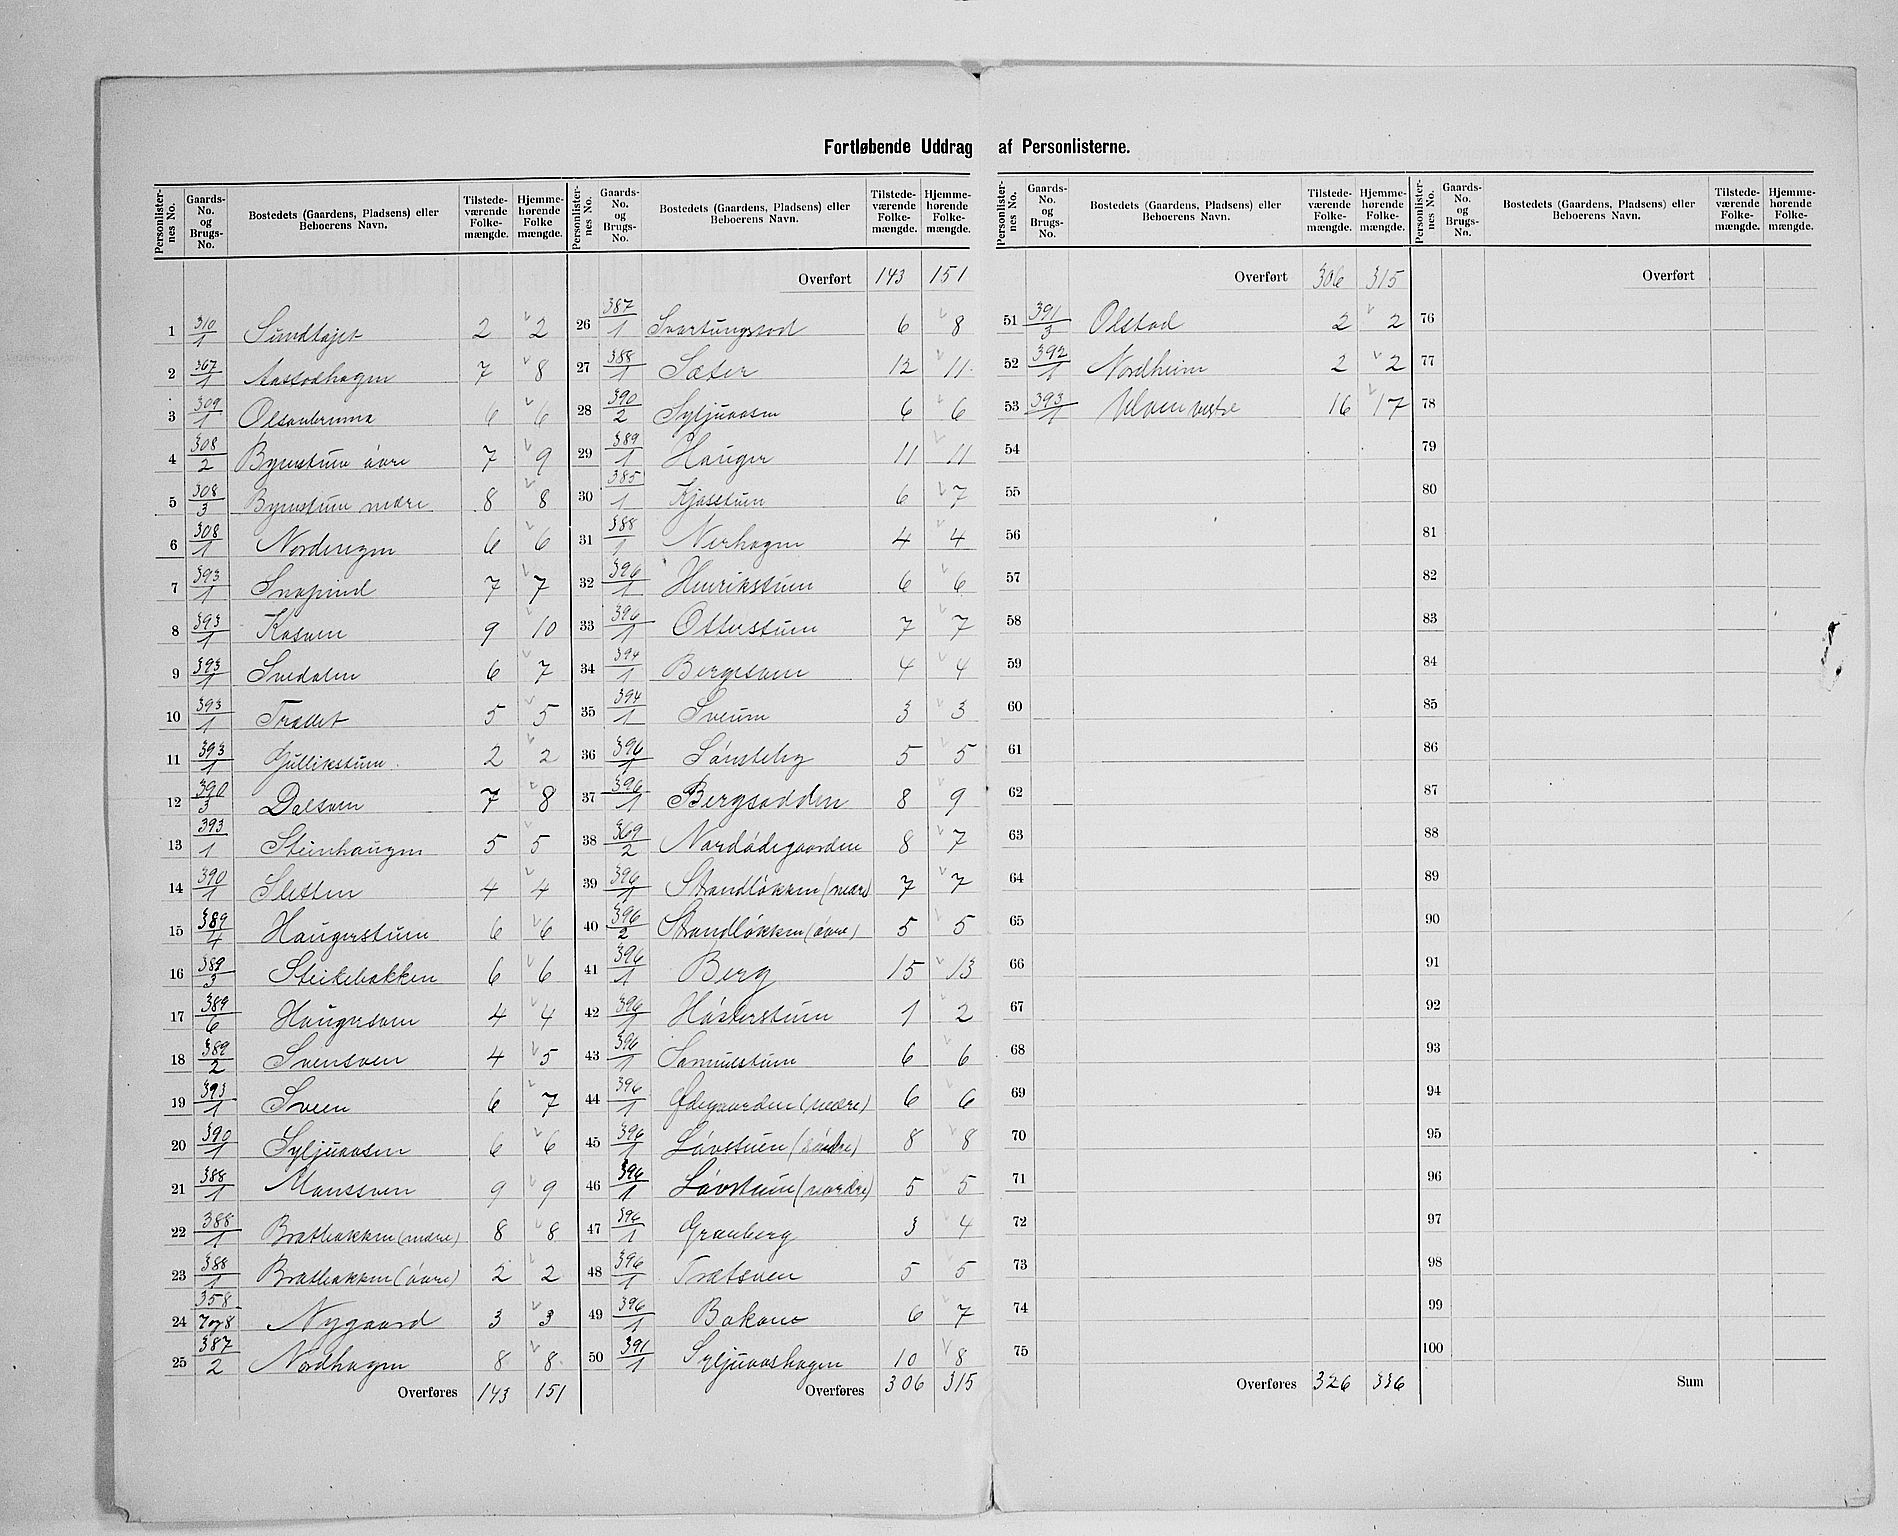 Fortløbende Uddrag af Personlisterne.
Personlisternes No. Gaards-No. og Brugs-No. Bostedets (Gaardens, Pladsens) eller Beboerens Navn. Tilstedeværende Folkemængde. Hjemmehørende Folkemængde.
1 310/1 2 2
2 367/1 Aastadhagen 7 8
3 309/1 6 6
4 308/2 Bynstuen øvre 7 9
5 308/3 Bynstuen nedre 8 8
6 308/1 Nordengen 6 6
7 393/1 7 7
8 393/1 9 10
9 393/1 Svedalen 6 7
10 393/1 Trællet 5 5
11 393/1 Gullikstuen 2 2
12 390/3 Dalsveen 7 8
13 393/1 Steinhaugen 5 5
14 390/1 Sletten 4 4
15 389/4 Haugerstuen 6 6
16 389/3 Steikebakken 6 6
17 389/6 Haugersveen 4 4
18 389/2 Svensveen 4 5
19 393/1 Sveen 6 7
20 390/1 Syljuaasen 6 6
21 388/1 Monssveen 9 9
22 388/1 Bratbakken (nedre) 8 8
23 388/1 Bratbakken (øvre) 2 2
24 358/7og8 Nygaard 3 3
25 387/2 Nordhagen 8 8
Overføres 143 151
Overført 143 151
26 387/1 6 8
27 388/1 Sæter 12 11
28 390/2 Syljuaasen 6 6
29 389/1 Hauger 11 11
30 385/1 6 7
31 388/1 Nerhagen 4 4
32 396/1 Henrikstuen 6 6
33 396/1 Otterstuen 7 7
34 394/1 Bergesveen 4 4
35 394/1 Sveum 3 3
36 396/1 Sønsteby 5 5
37 396/1 Bergsodden 8 9
38 369/2 Nordødegaarden 8 7
39 396/1 Strandløkken (nedre) 7 7
40 396/2 Strandløkken (øvre) 5 5
41 396/1 Berg 15 13
42 396/1 1 2
43 396/1 Samuelstuen 6 6
44 396/1 Ødegaarden (nedre) 6 6
45 396/1 Løvstuen (søndre) 8 8
46 396/1 Løvstuen (nordre) 5 5
47 396/1 Granberg 3 4
48 396/1 5 5
49 396/1 6 7
50 391/1 Syljuaashagen 10 8
Overføres 306 315
Personlisternes No. Gaards-No. og Brugs-No. Bostedets (Gaardens, Pladsens) eller Beboerens Navn. Tilstedeværende Folkemængde. Hjemmehørende Folkemængde.
Overført 306 315
51 391/3 Olstad 2 2
52 392/1 Nordheim 2 2
53 393/1 Ulven vestre 16 17
54
55
56
57
58
59
60
61
62
63
64
65
66
67
68
69
70
71
72
73
74
75
Overføres 326 336
Overført
76
77
78
79
80
81
82
83
84
85
86
87
88
89
90
91
92
93
94
95
96
97
98
99
100
Sum